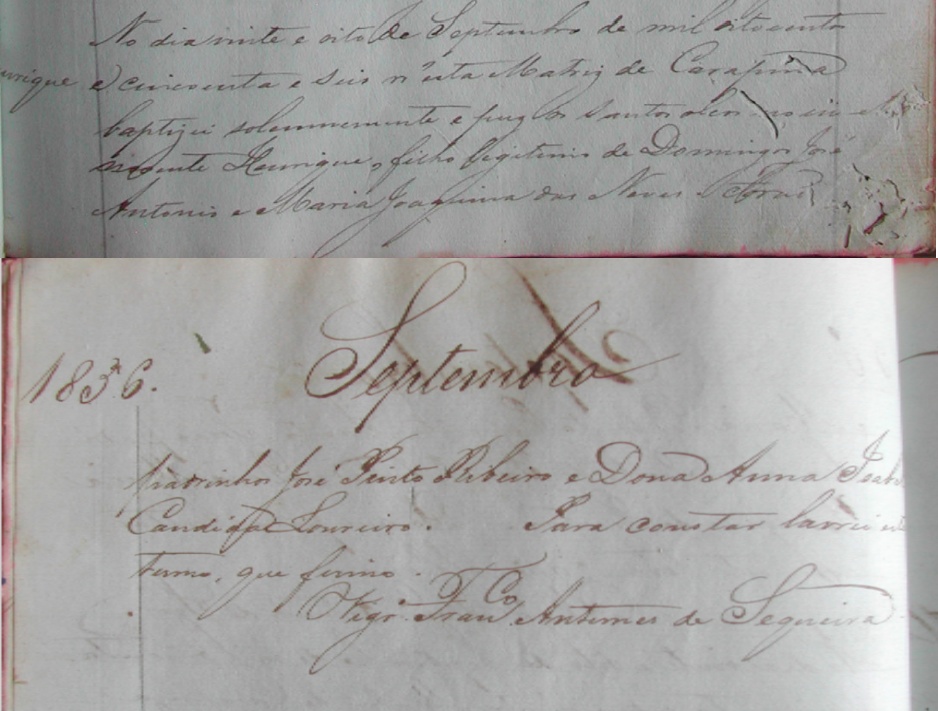 No dia vinte e oito de Septembro de mil oitocento
enrique e cincoenta e seis n'esta Matriz de Carapina
baptizei solemnemente e puz os Santos oleos
Henrique, filho legitimo de Domingos José
Antonio e Maria Joaquina das Neves. Forão
1856. Septembro
padrinhos José Pinto Ribeiro e Dona Anna Isab
Candida Loureiro. Para constar lavrei
termo, que firmo.
Vigr.º Fran.co Antunes de Sequeira